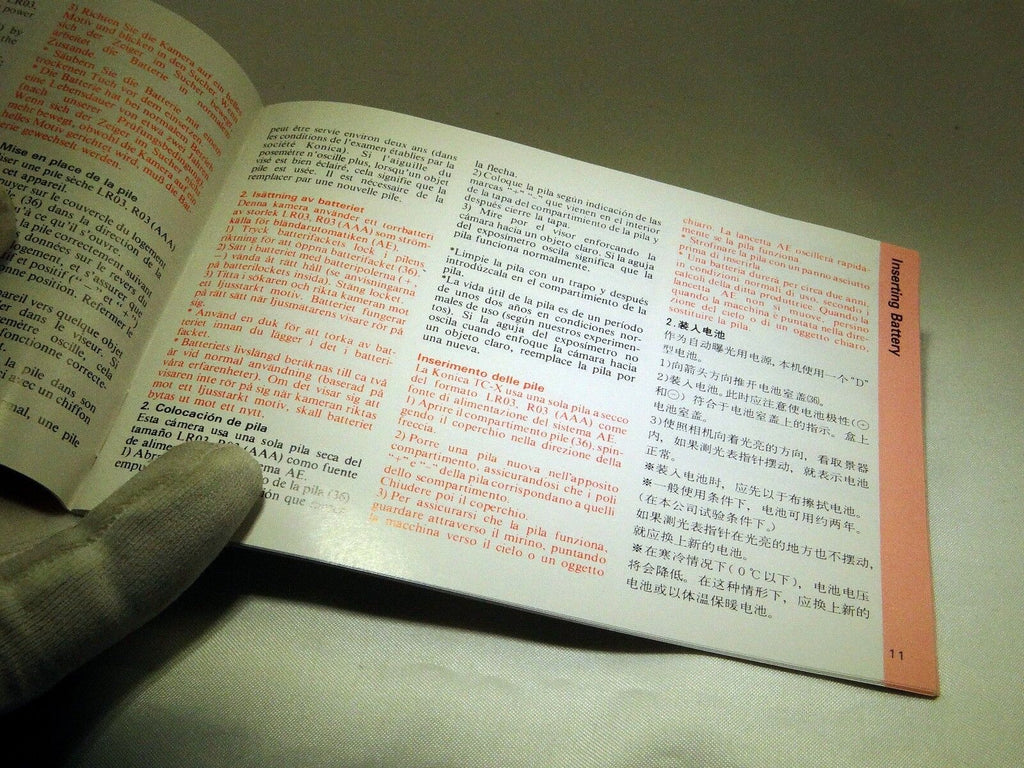 LR03.
power
) by
the
3) Richten Sie die Kamera auf ein helles
Motiv und blicken in den Sucher. Wenn
sich der Zeiger im Sucher bewegt,
arbeitet die Batterie in normalem
Zustande.
* Säubern Sie die Batterie mit einem
trockenen Tuch vor dem einsetzen.
* Die Batterie hat bei normalem Betrieb
eine Lebensdauer von etwa zwei Jahren
(nach unseren Prüfungsbedingungen).
Wenn sich der Zeiger im Sucher nicht
mehr bewegt, obwohl die Kamera auf ein
helles Motiv gerichtet wird, muß die Bat-
terie gewechselt werden.
Mise en place de la pile
user une pile sèche LR03, R03 (AAA)
cet appareil.
puyer sur le couvercle du logement
(36) dans la direction de la
qu'à ce qu'il s'ouvre.
la pile correctement, suivant
données sur le revers du
logement, et s'assurer que
if et positif ("−" et "+")
nne position. Refermer le
areil vers quelque objet
er dans le viseur. Si
emètre oscille, cela
fonctionne correcte-
la pile dans son
avec un chiffon
mal, une pile
peut être servie environ deux ans (dans
les conditions de l'examen établies par la
société Konica). Si l'aiguille du
posemètre n'oscille plus, lorsqu'un objet
visé est bien éclairé, cela signifie que la
pile est usée. Il est nécessaire de la
remplacer par une nouvelle pile.
2. Isättning av batteriet
Denna kamera använder ett torrbatteri
av storlek LR03, R03 (AAA) som ström-
källa för bländarautomatiken (AE).
1) Tryck batterifackets lock i pilens
riktning för att öppna batterifacket (36).
2) Sätt i batteriet med batteripolerna (+,
−) vända åt rätt håll (se anvisningarna
på batterilockets insida). Stäng locket.
3) Titta i sökaren och rikta kameran mot
ett ljusstarkt motiv. Batteriet fungerar
på rätt sätt när ljusmätarens visare rör på
sig.
* Använd en duk för att torka av bat-
teriet innan du lägger i det i batteri-
facket.
* Batteriets livslängd beräknas till ca två
år vid normal användning (baserad på
våra erfarenheter). Om det visar sig att
visaren inte rör på sig när kameran riktas
mot ett ljusstarkt motiv, skall batteriet
bytas ut mot ett nytt.
2. Colocación de pila
Esta cámara usa una sola pila seca del
tamaño LR03, R03 (AAA) como fuente
de alime ema AE.
1) Abr o de la pila (36)
empu ón que
la flecha.
2) Coloque la pila según indicación de las
marcas "+" "−" que vienen en el interior
de la tapa del compartimiento de la pila y
después cierre la tapa.
3) Mire por el visor enforcando la
cámara hacia un objeto claro. Si la aguja
del exposímetro oscila significa que la
pila funciona normalmente.
*Limpie la pila con un trapo y después
introdúzcala en el compartimiento de la
pila.
*La vida útil de la pila es de un período
de unos dos años en condiciones nor-
males de uso (según nuestros experimen-
tos). Si la aguja del exposímetro no
oscila cuando enfoque la cámara hacia
un objeto claro, reemplace la pila por
una nueva.
Inserimento delle pile
La Konica TC-X usa una sola pila a secco
del formato LR03, R03 (AAA) come
fonte di alimentazione del sistema AE.
1) Aprire il compartimento pile (36), spin-
gendo il coperchio nella direzione della
freccia.
2) Porre una pila nuova nell'apposito
compartimento, assicurandosi che i poli
"+" e "−" della pila corrispondano a quelli
dello scompartimento.
Chiudere poi il coperchio.
3) Per assicurarsi che la pila funziona,
guardare attraverso il mirino, puntando
la macchina verso il cielo o un oggetto
chiaro. La lancetta AE oscillerà rapida-
mente se la pila funziona.
* Strofinare la pila con un panno asciutto
prima di inserirla.
* Una batteria dura per circa due anni,
in condizioni normali di uso, secondo i
calcoli della ditta produttrice. Quando la
lancetta AE non si muove, persino
quando la macchina è puntata nella dire-
zione del cielo o di un oggetto chiaro,
sostituire la pila.
2.装入电池
作为自动曝光用电源,本机使用一个"D"
型电池。
1)向箭头方向推开电池室盖(36)。
2)装入电池。此时应注意使电池极性(⊕
和⊖)符合于电池室盖上的指示。盒上
电池室盖。
3)使照相机向着光亮的方向,看取景器
内,如果测光表指针摆动,就表示电池
正常。
※装入电池时,应先以干布擦拭电池。
※一般使用条件下,电池可用约两年。
(在本公司试验条件下。)
如果测光表指针在光亮的地方也不摆动,
就应换上新的电池。
※在寒冷情况下(0℃以下),电池电压
将会降低。在这种情形下,应换上新的
电池或以体温保暖电池。
Inserting Battery
11